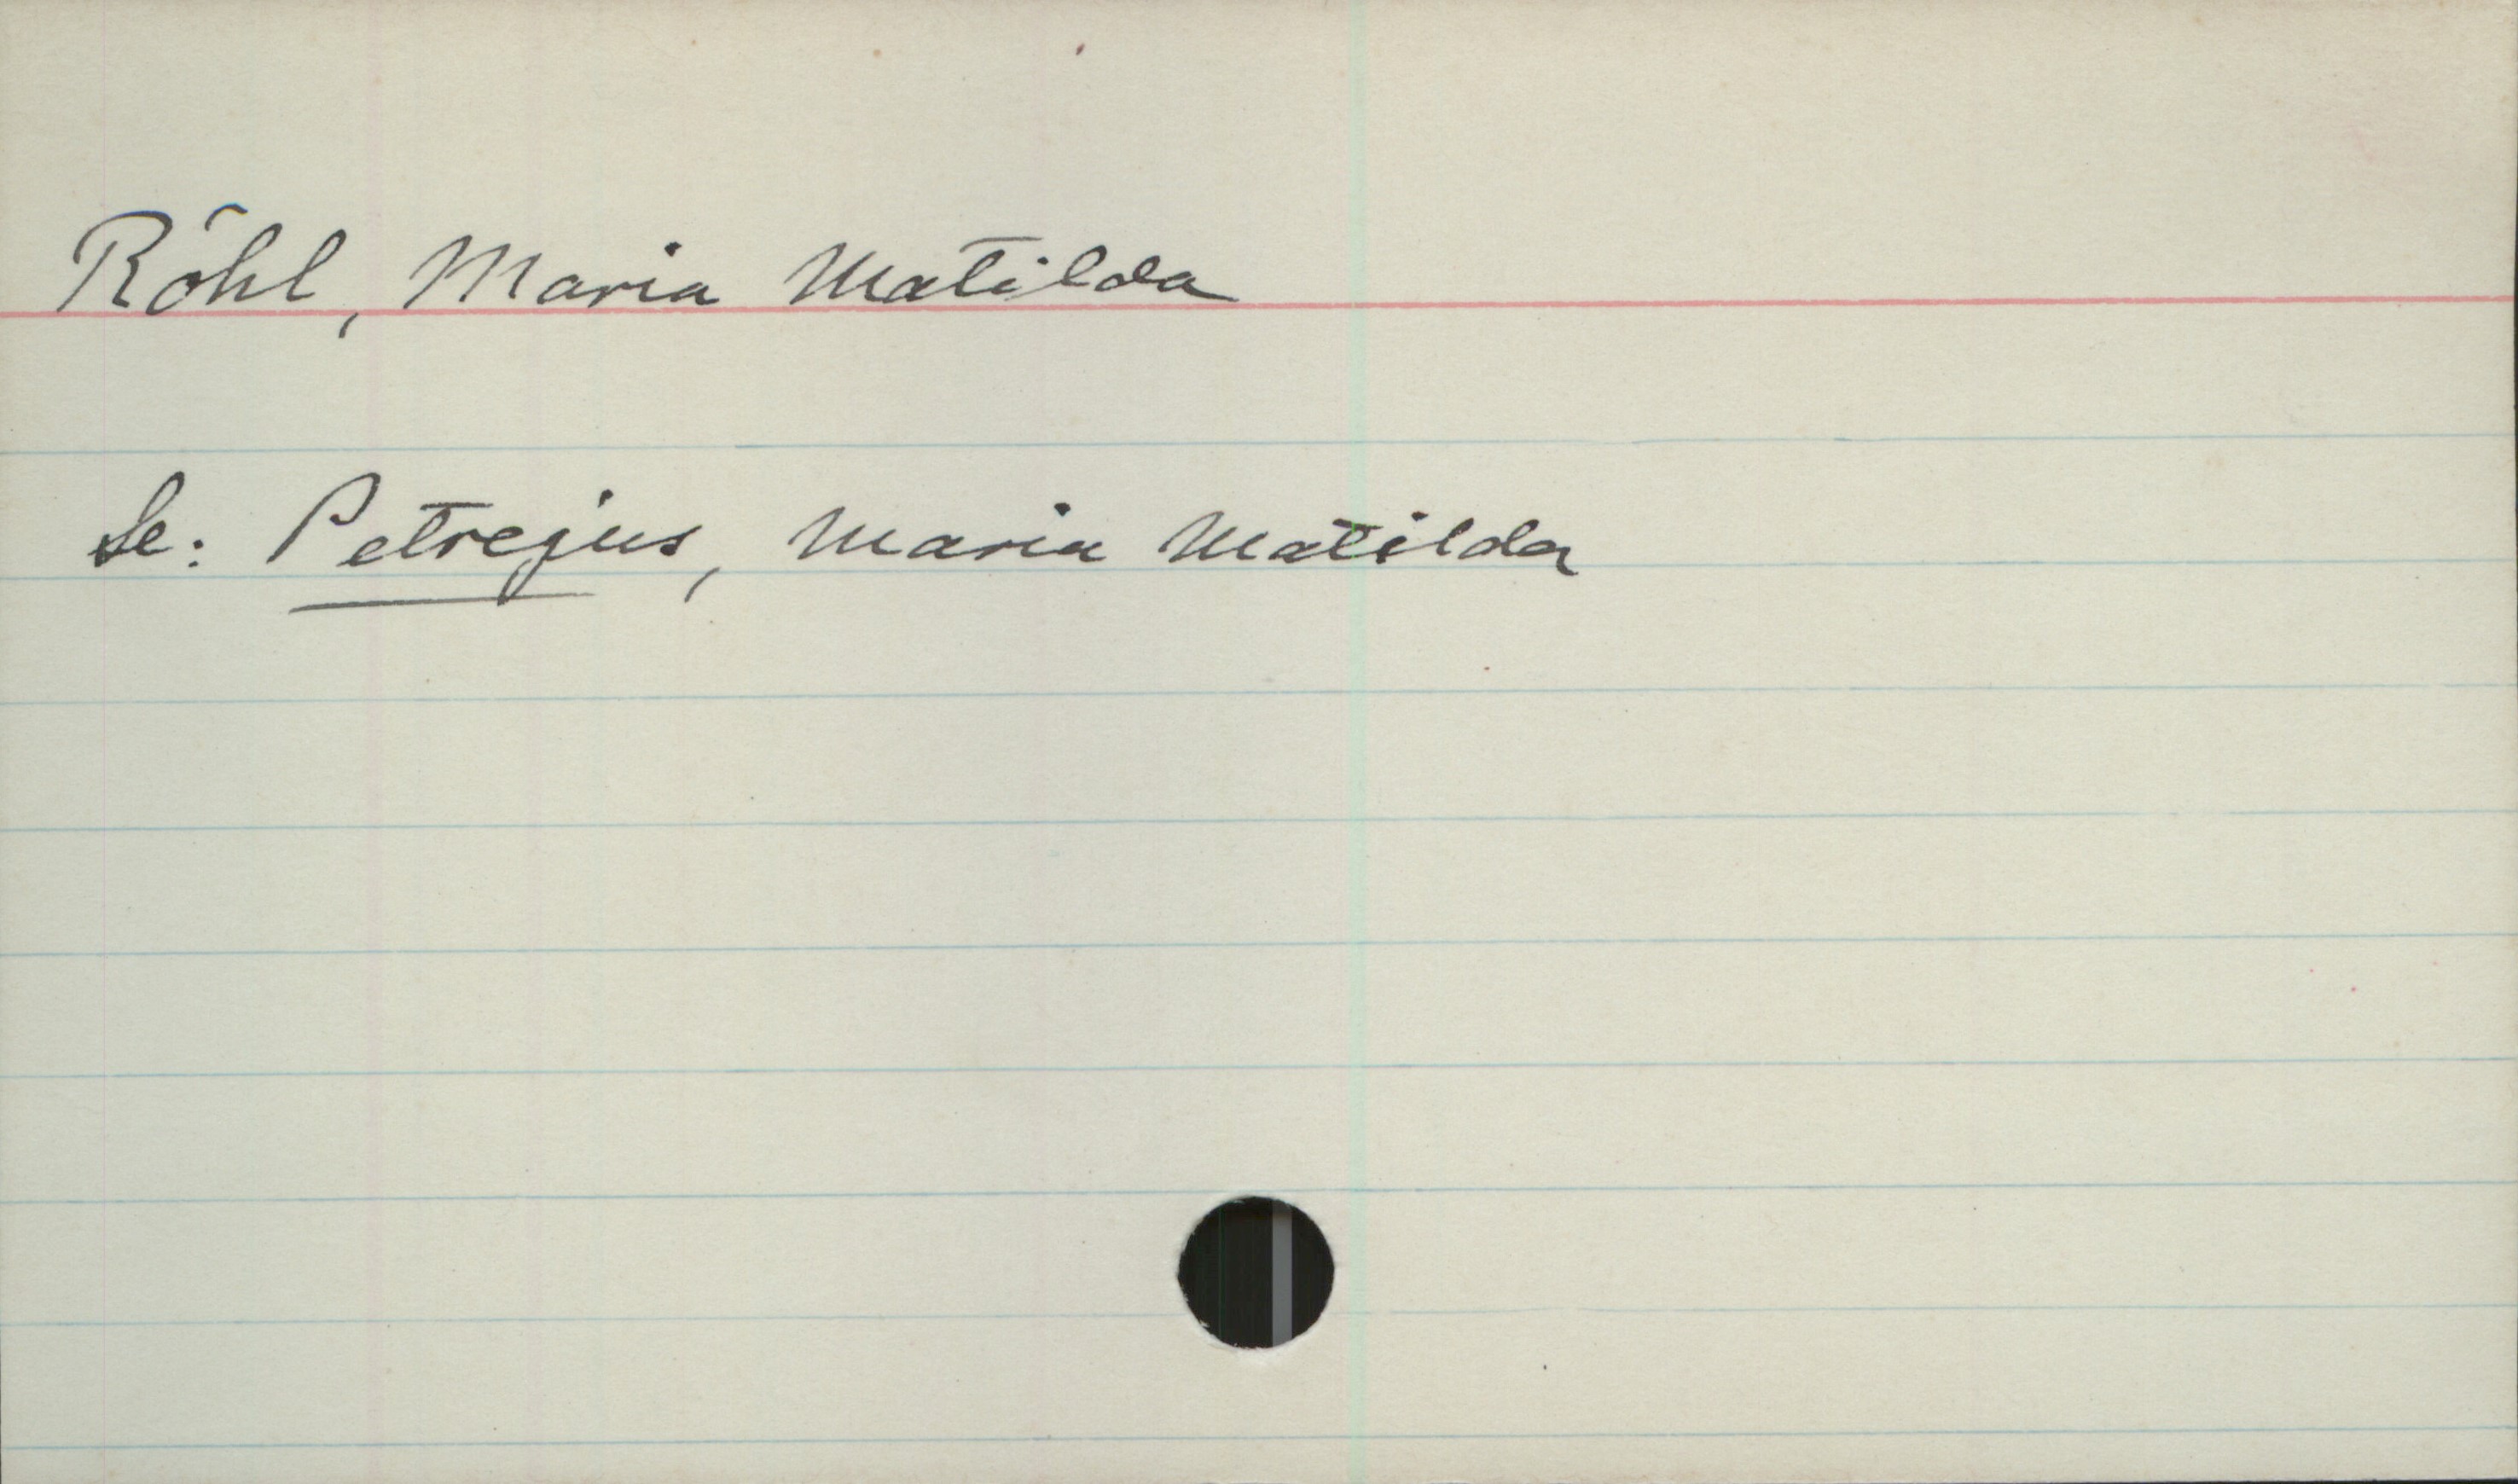 Röhl, Maria Matilda
Se: Petrejus, Maria Matilda